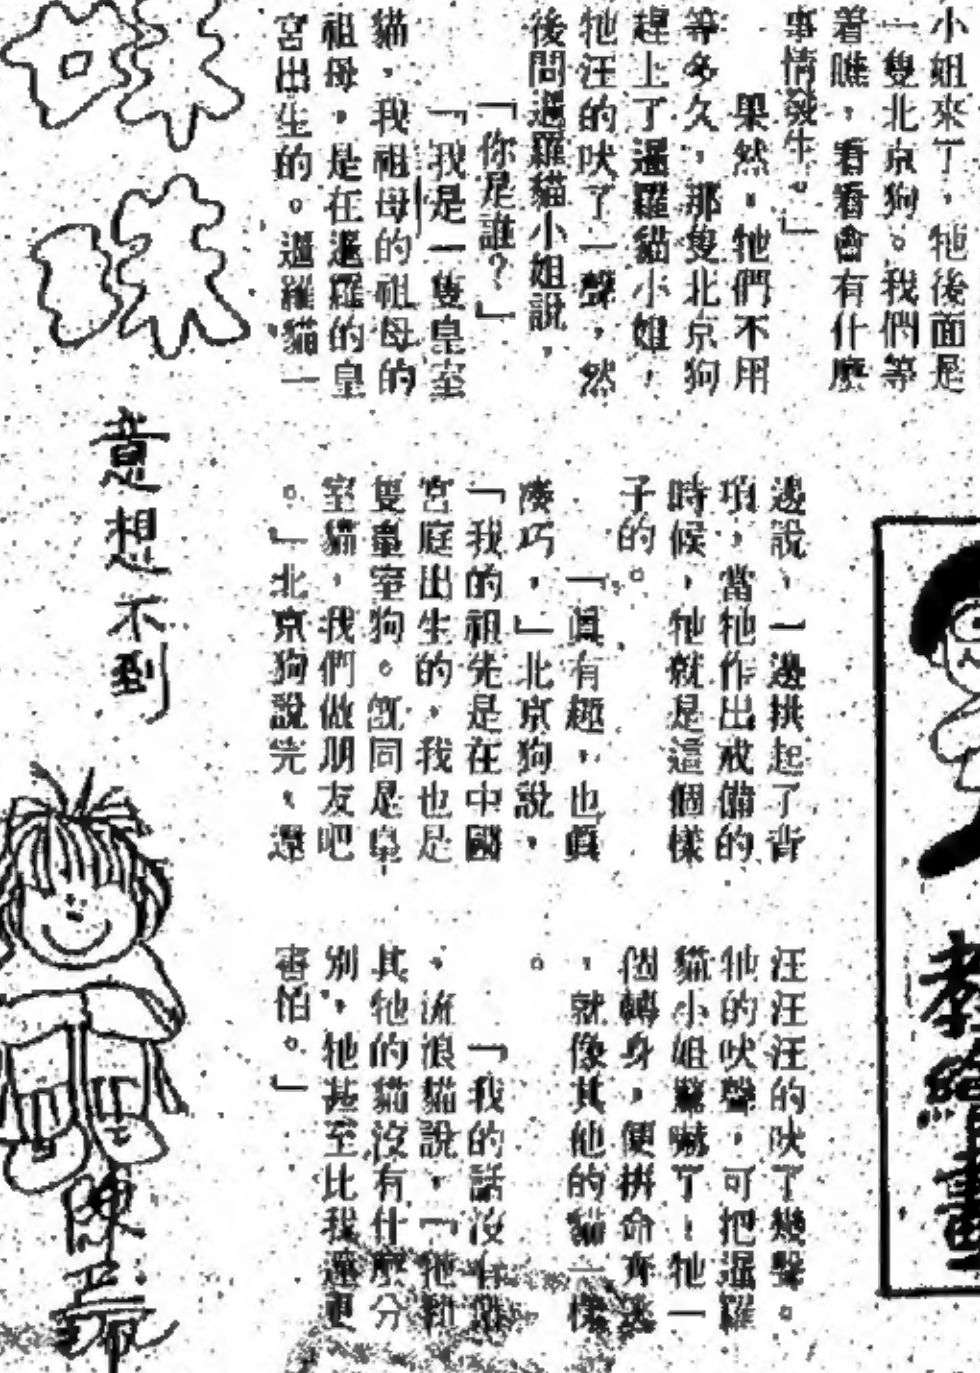 小姐來了，牠後面是
一隻北京狗。我們等
着瞧，看看會有什麼
事情發生。」
果然，牠們不用
等多久，那隻北京狗
趕上了暹羅貓小姐，
牠汪的吠了一聲，然
後問暹羅貓小姐說，
「你是誰？」
「我是一隻皇室
貓，我祖母的祖母的
祖母，是在暹羅的皇
宮出生的。暹羅貓一
邊說，一邊拱起了背
項，當牠作出戒備的
時候，牠就是這個樣
子的。
「眞有趣，也眞
凑巧，」北京狗說，
「我的祖先是在中國
宮庭出生的，我也是
隻皇室狗。旣同是皇
室貓，我們做朋友吧
。」北京狗說完，還
汪汪汪的吠了幾聲。
牠的吠聲，可把暹羅
貓小姐驚嚇了！牠一
個轉身，便拼命奔逃
，就像其他的貓一樣
。
「我的話沒有錯
，流浪貓說，「牠和
其牠的貓沒有什麼分
別，牠甚至比我還更
害怕。」
妹妹
意想不到
陳
教繪畫